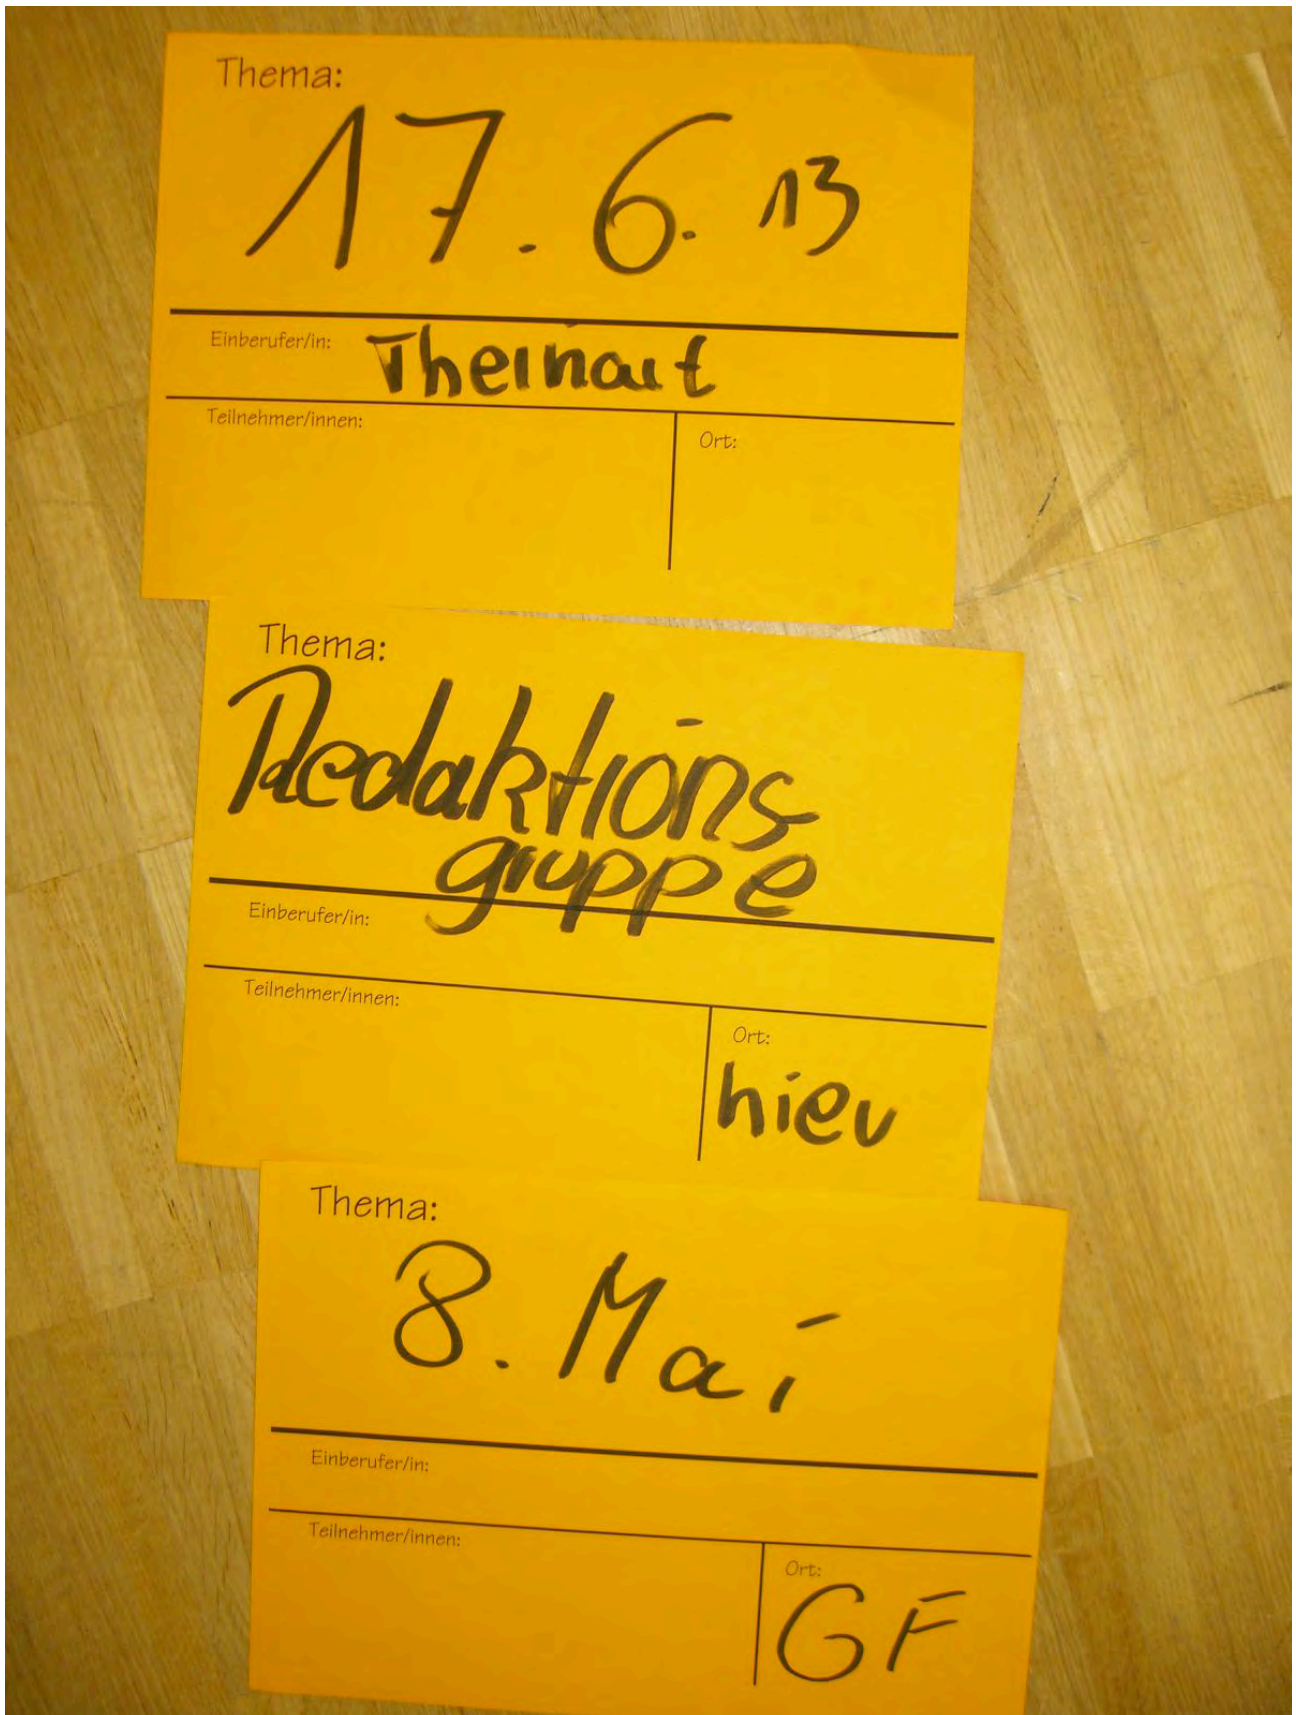 Thema:
17.6.13
Einberufer/in: Theinart
Teilnehmer/innen:
Ort:
Thema:
Redaktions
gruppe
Einberufer/in:
Teilnehmer/innen:
Ort:
hier
Thema:
8. Mai
Einberufer/in:
Teilnehmer/innen:
Ort:
GF